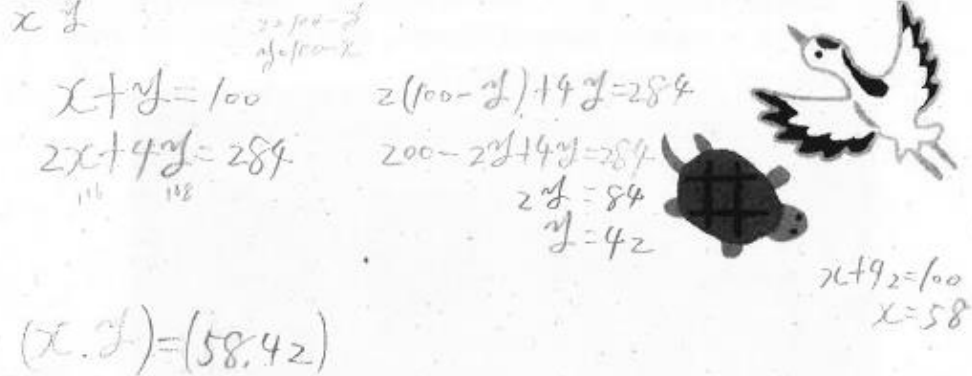 x y
x=100-y
y=100-x
x+y=100
2x+4y=284
116 168
2(100-y)+4y=284
200-2y+4y=284
2y=84
y=42
x+42=100
x=58
(x.y)=(58.42)